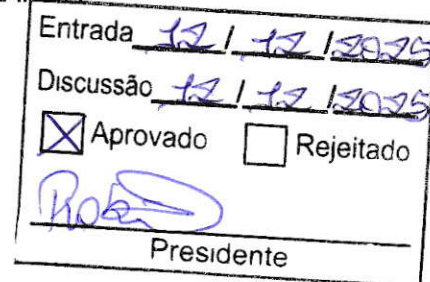 Entrada 12 / 12 / 2025
Discussão 12 / 12 / 2025
☒ Aprovado ☐ Rejeitado
Presidente